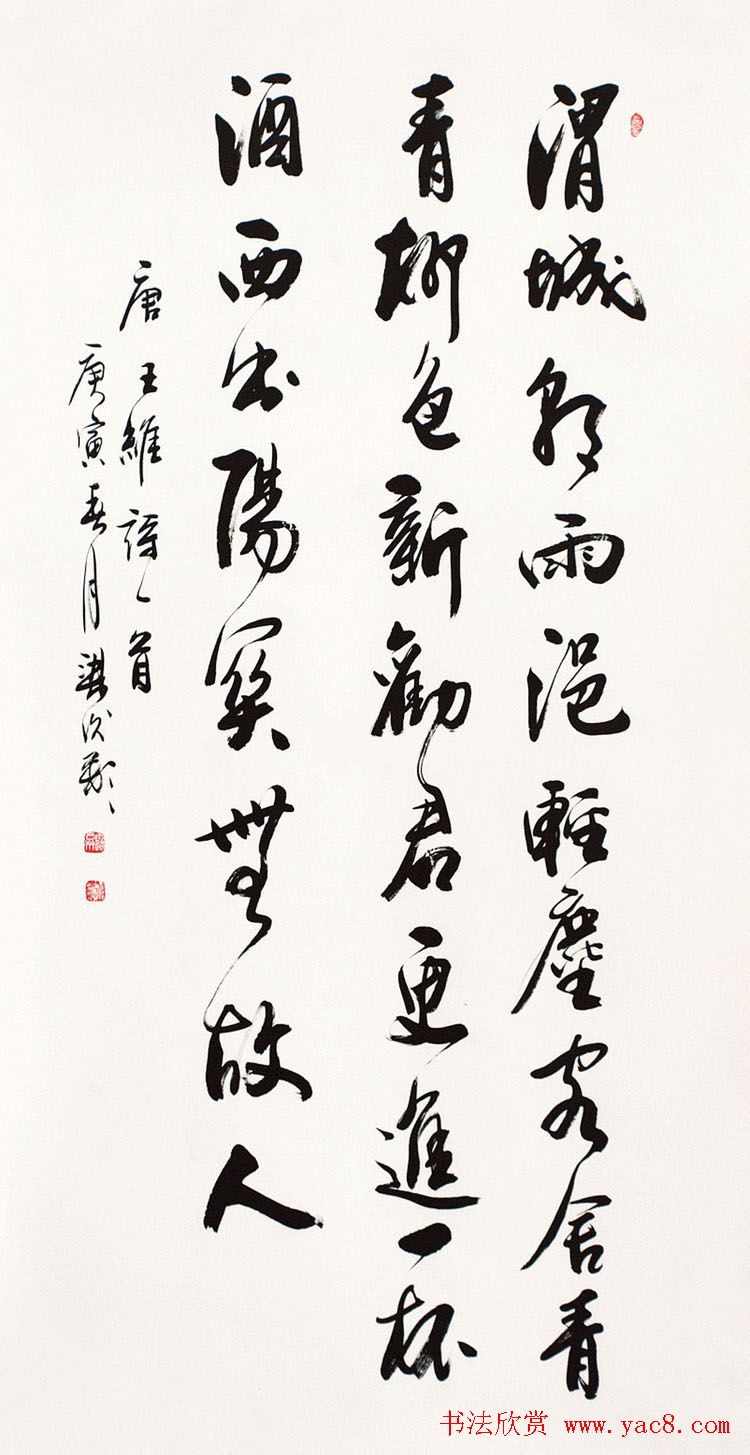 渭城朝雨浥輕塵客舍青
青柳色新勸君更進一杯
酒西出陽關無故人
唐王維詩一首
庚寅春月
书法欣赏 www.yac8.com